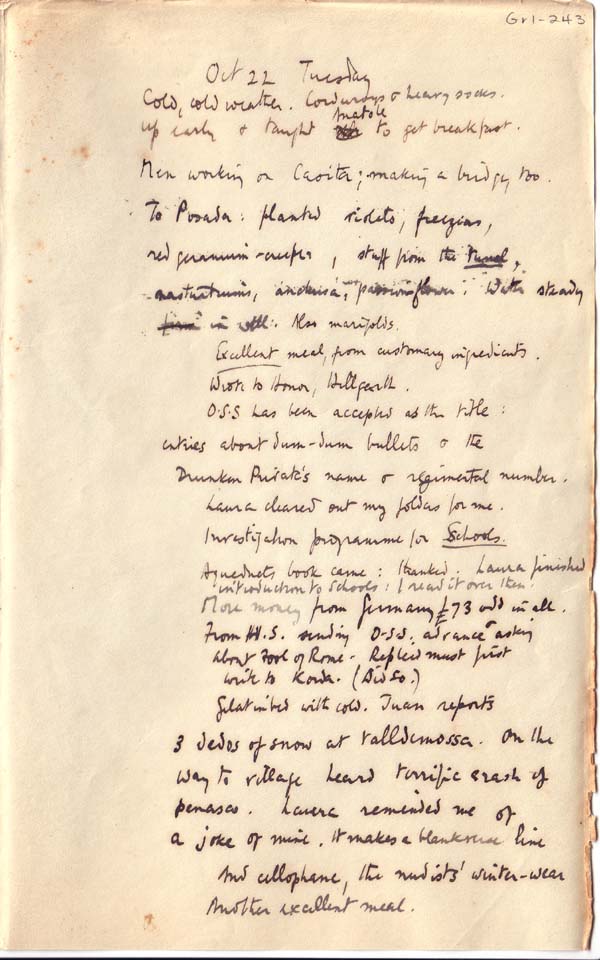 Gr1-243
Oct 22 Tuesday
Cold, cold weather. Corduroys & heavy socks.
Up early & taught Anatole to get breakfast.
Men working on Casita; making a bridge, too.
To Posada: planted violets, freezias,
red geranium-creeper, stuff from the tunnel,
nasturtiums, anchusa, passionflower. Water steady
in well. Also marigolds.
Excellent meal, from customary ingredients.
Wrote to Honor, Hillgarth.
O.S.S has been accepted as the title:
entries about dum-dum bullets & the
Drunken Private's name & regimental number.
Laura cleared out my folders for me.
Investigation programme for Schools.
Aqueducts book came: thanked. Laura finished
introduction to Schools: I read it over then.
More money from Germany £73 odd in all.
From H.S. sending O.S.S. advance & asking
about Fool of Rome. Replied must first
write to Korda. (Did so.)
Gelat in bed with cold. Juan reports
3 dedos of snow at Valldemossa. On the
way to village heard terrific crash of
penasco. Laura reminded me of
a joke of mine. It makes a blankverse line
And cellophane, the nudists' winter-wear
Another excellent meal.